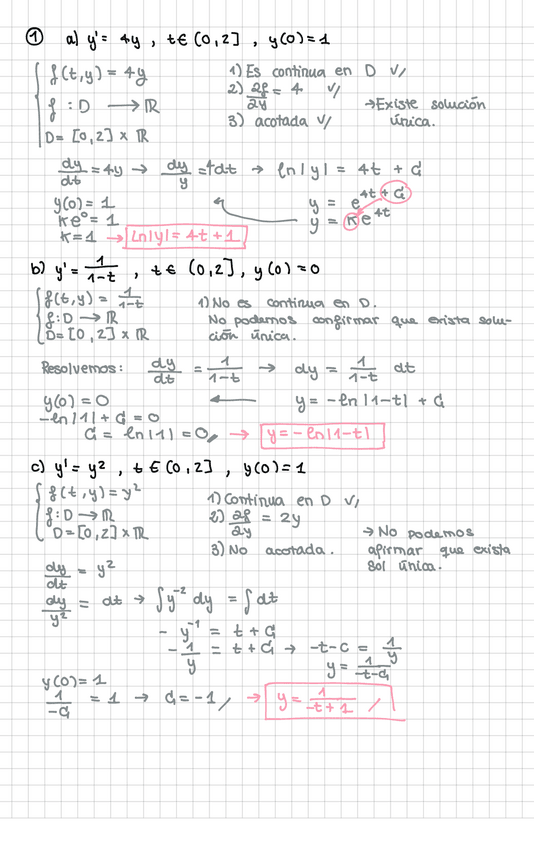 ① a) y' = 4y , t ∈ (0,2] , y(0) = 1
{ f(t,y) = 4y
f : D → ℝ
D = [0,2] x ℝ
1) Es continua en D ✓
2) ∂f/∂y = 4 ✓
3) acotada ✓
→ Existe solución
única.
dy/dt = 4y → dy/y = 4dt → ln|y| = 4t + C
y(0) = 1
y = e^(4t + C)
ke⁰ = 1
y = Ke^(4t)
K = 1 → Ln|y| = 4t + 1
b) y' = 1/(1-t) , t ∈ (0,2] , y(0) = 0
{ f(t,y) = 1/(1-t)
f : D → ℝ
D = [0,2] x ℝ
1) No es continua en D.
No podemos confirmar que exista solu-
ción única.
Resolvemos: dy/dt = 1/(1-t) → dy = 1/(1-t) dt
y(0) = 0 ← y = -ln|1-t| + C
-ln|1| + C = 0
C = ln|1| = 0 → y = -ln|1-t|
c) y' = y² , t ∈ (0,2] , y(0) = 1
{ f(t,y) = y²
f : D → ℝ
D = [0,2] x ℝ
1) Continua en D ✓
2) ∂f/∂y = 2y
3) No acotada.
→ No podemos
afirmar que exista
sol única.
dy/dt = y²
dy/y² = dt → ∫y⁻² dy = ∫dt
- y⁻¹ = t + C
- 1/y = t + C → -t-c = 1/y
y = 1/(-t-C)
y(0) = 1
1/-C = 1 → C = -1 → y = 1/(-t+1)